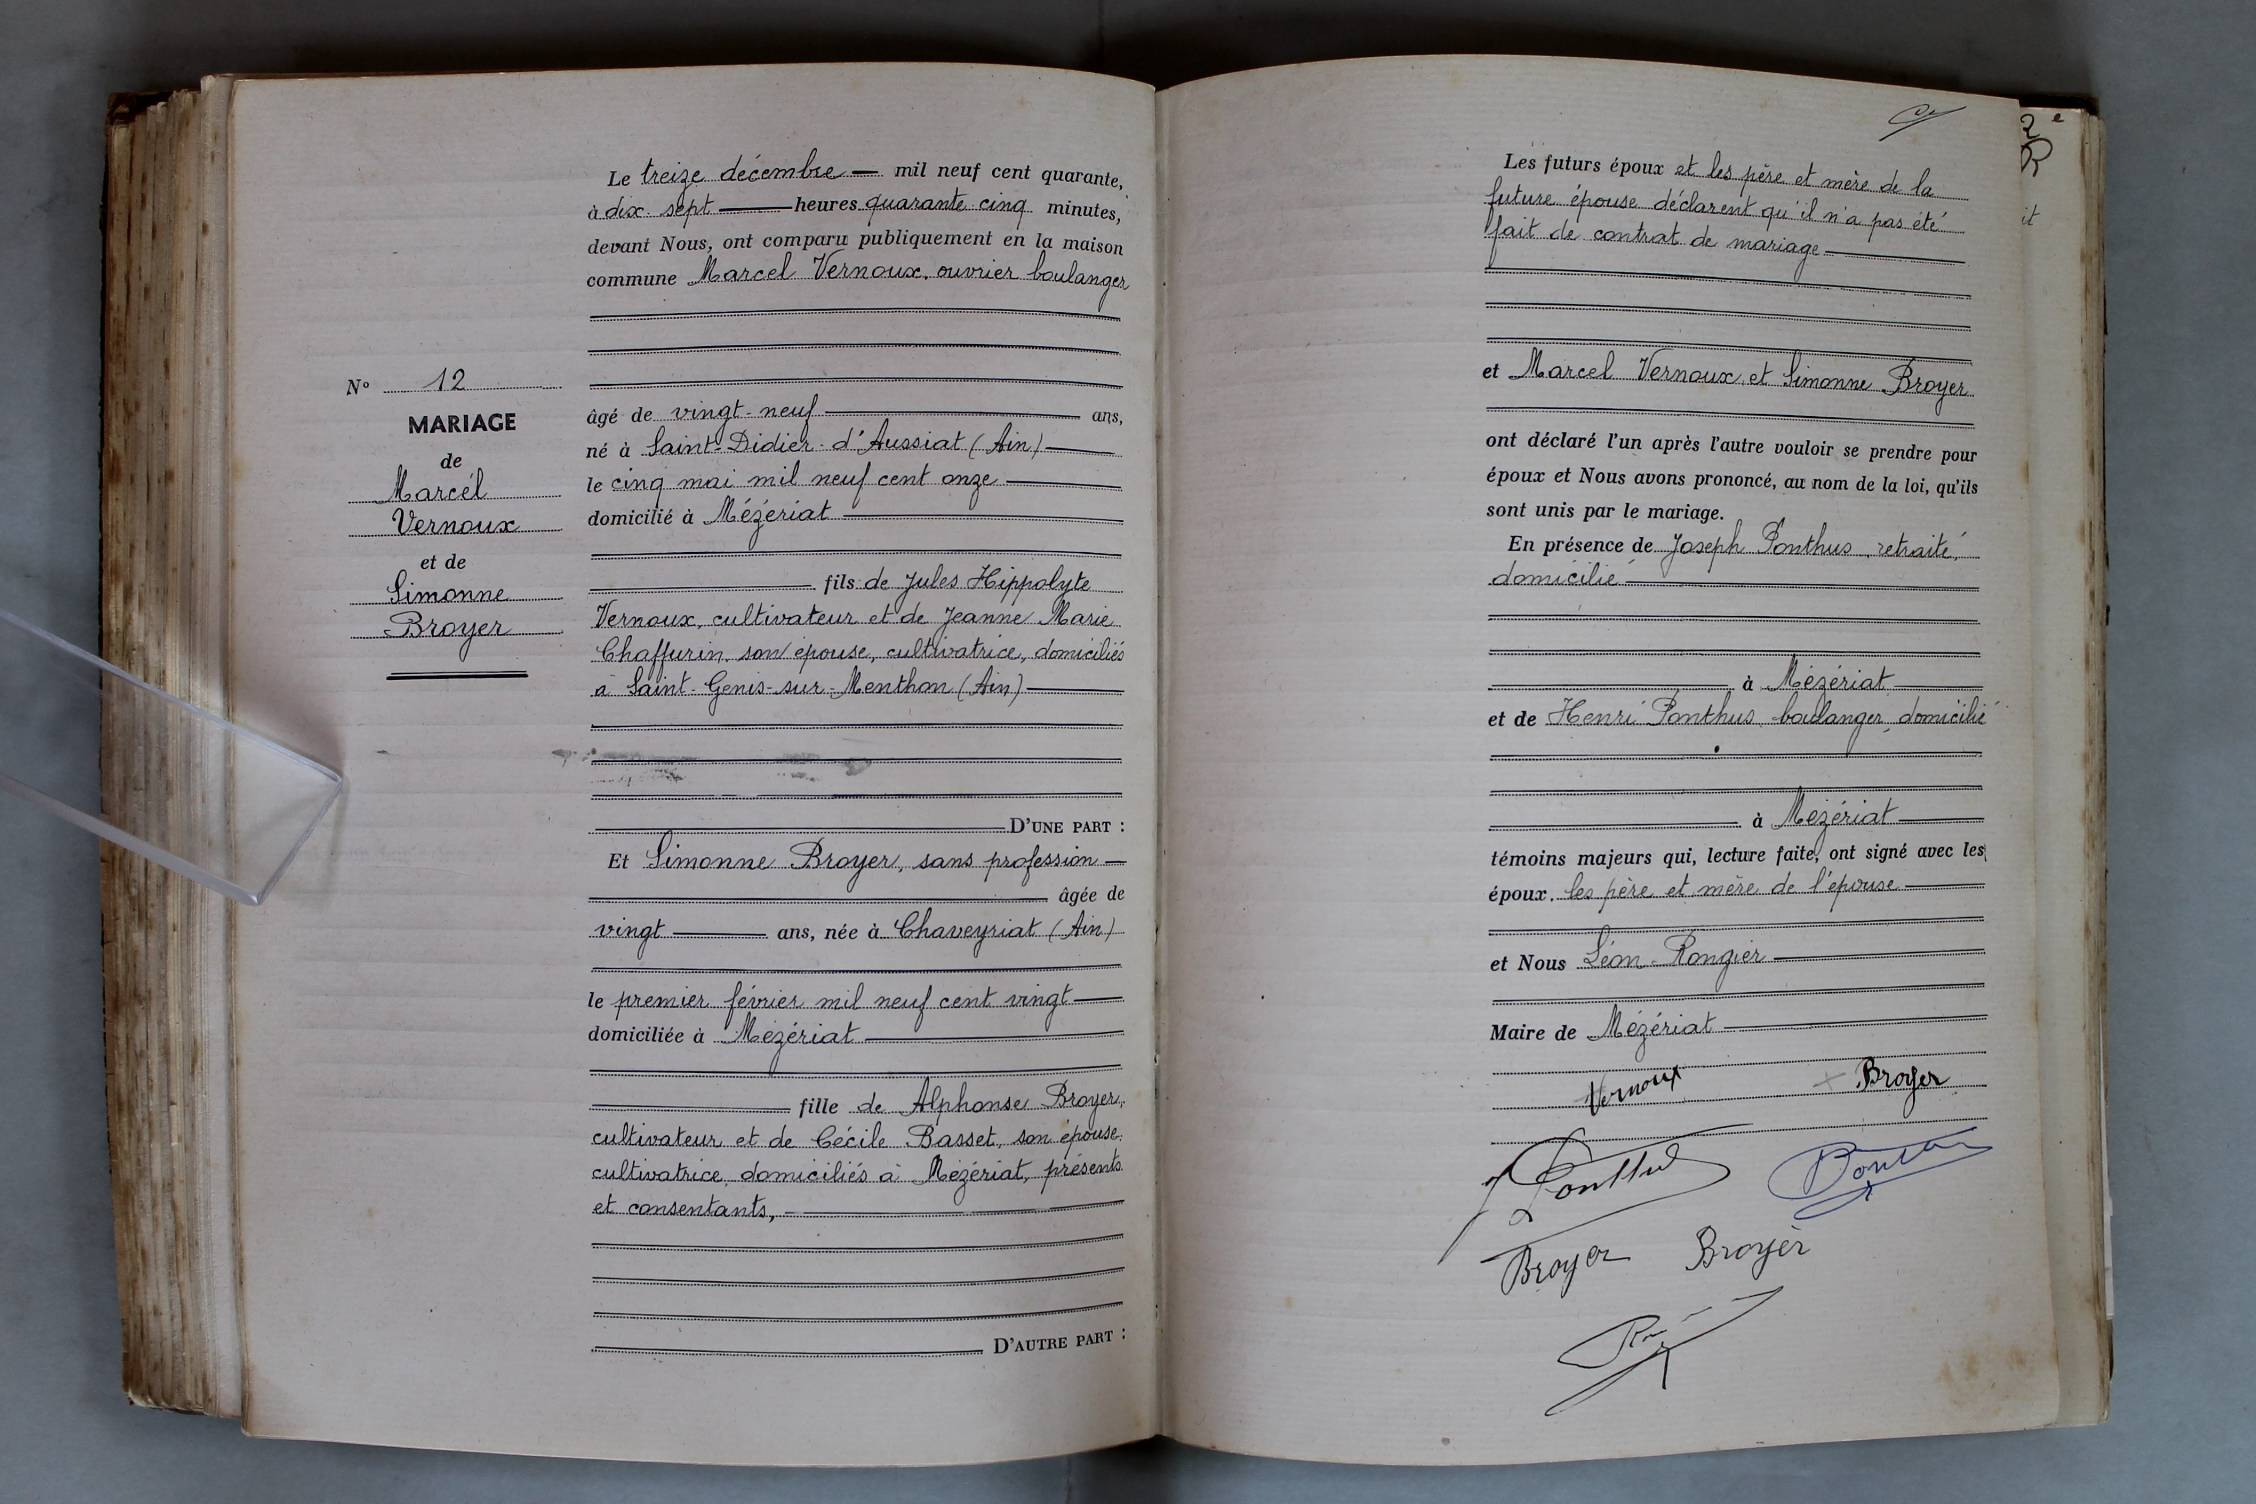 N° 12
MARIAGE
de
Marcel
Vernoux
et de
Simonne
Broyer
Le treize décembre — mil neuf cent quarante,
à dix-sept — heures quarante cinq minutes,
devant Nous, ont comparu publiquement en la maison
commune Marcel Vernoux, ouvrier boulanger
âgé de vingt-neuf — ans,
né à Saint-Didier-d'Aussiat (Ain) —
le cinq mai mil neuf cent onze —
domicilié à Mézériat —
— fils de Jules Hippolyte
Vernoux, cultivateur et de Jeanne Marie
Chaffurin, son épouse, cultivatrice, domiciliés
à Saint-Genis-sur-Menthon (Ain) —
D'UNE PART :
Et Simonne Broyer, sans profession —
— âgée de
vingt — ans, née à Chaveyriat (Ain)
le premier février mil neuf cent vingt —
domiciliée à Mézériat —
— fille de Alphonse Broyer,
cultivateur et de Cécile Basset, son épouse,
cultivatrice, domiciliés à Mézériat, présents
et consentants, —
D'AUTRE PART :
Les futurs époux et les père et mère de la
future épouse déclarent qu'il n'a pas été
fait de contrat de mariage —
et Marcel Vernoux et Simonne Broyer
ont déclaré l'un après l'autre vouloir se prendre pour
époux et Nous avons prononcé, au nom de la loi, qu'ils
sont unis par le mariage.
En présence de Joseph Ponthus, retraité,
domicilié —
— à Mézériat —
et de Henri Ponthus, boulanger, domicilié
— à Mézériat —
témoins majeurs qui, lecture faite, ont signé avec les
époux, les père et mère de l'épouse —
et Nous Léon Rongier —
Maire de Mézériat —
Vernoux Broyer
J Ponthus
Broyer Broyer